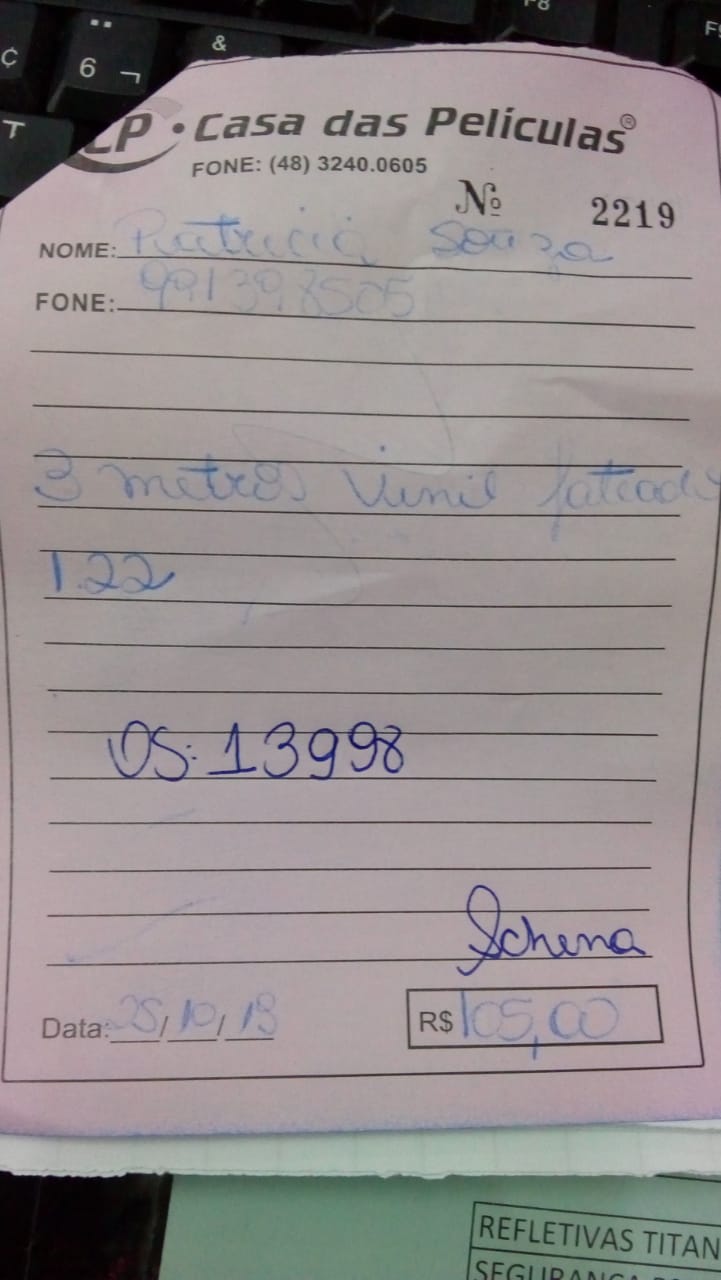 ¢
6 ¬
&
F8
T
CP • Casa das Películas®
FONE: (48) 3240.0605
Nº 2219
NOME: Patricia Souza
FONE: 991398505
3 metros Vinil
1.22
OS: 13998
Schena
Data: 25/10/19
R$ 105,00
REFLETIVAS TITAN